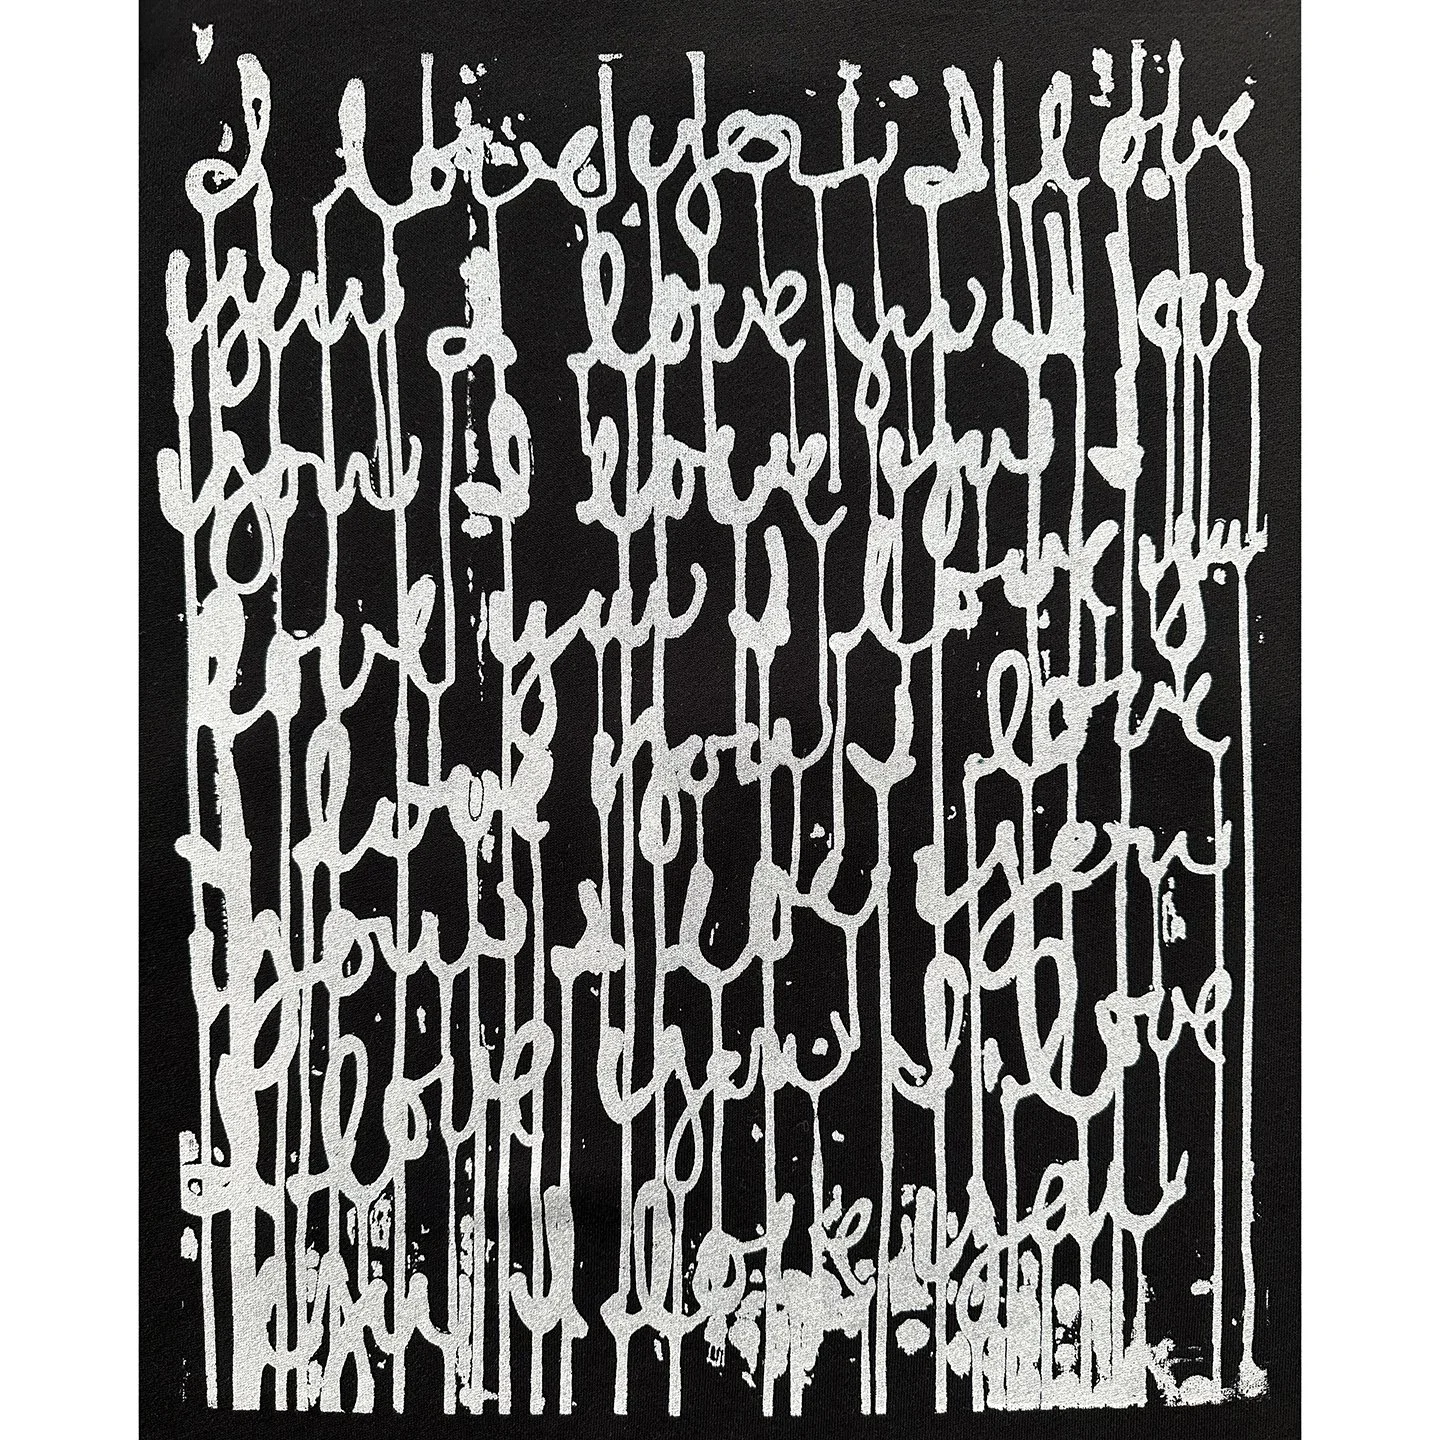 I loved you I love
you I love you I lov
you I love you I
love you I love you
I love you I love
you I love you
I love you I love
you I love you